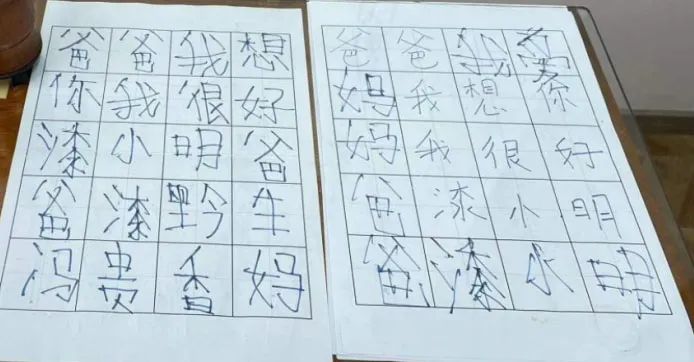 爸爸我想
你我很好
漆小明爸
爸漆黔生
冯贵香妈
爸爸我爱
妈我想你
妈我很好
爸漆小明
爸漆水明